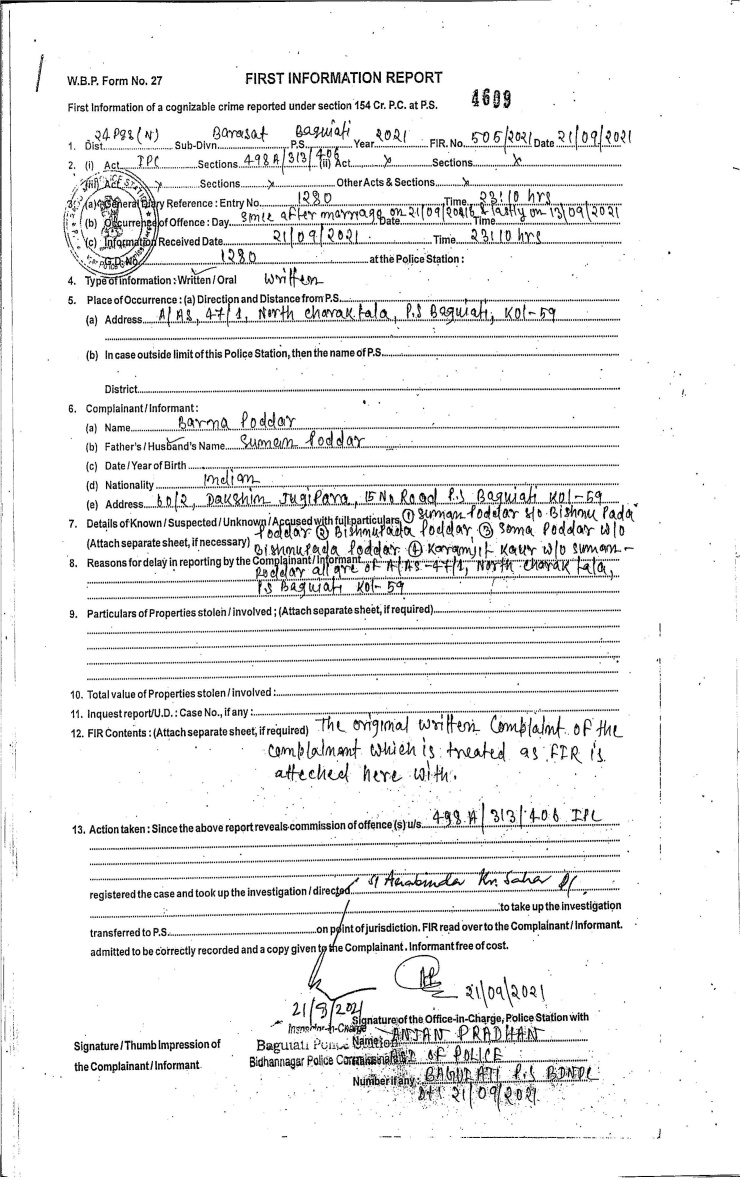 W.B.P. Form No. 27 FIRST INFORMATION REPORT
First Information of a cognizable crime reported under section 154 Cr. P.C. at P.S. 4609
1. Dist. 24 PGS (N) Sub-Divn. Barasat P.S. Baguiati Year 2021 FIR. No. 505/2021 Date 21/09/2021
2. (i) Act IPC Sections 498A/313/406 (ii) Act x Sections x
(iii) Act x Sections x Other Acts & Sections x
3. (a) General Diary Reference : Entry No. 1280 Time 23:10 hrs
(b) Occurrence of Offence : Day since after marrage on 21/09/ & lastly on 13/09/2021 Date Time
(c) Information Received Date 21/09/2021. Time 23:10 hrs
G.D. No. 1280 at the Police Station :
4. Type of information : Written / Oral Written
5. Place of Occurrence : (a) Direction and Distance from P.S.
(a) Address A/AS, 47/1, North Charaktala, P.S Baguiati, Kol-59
(b) In case outside limit of this Police Station, then the name of P.S.
District
6. Complainant / Informant :
(a) Name Barna Poddar
(b) Father's / Husband's Name Suman Poddar
(c) Date / Year of Birth
(d) Nationality Indian
(e) Address 60/2, Dakshin Jugipara, 15 No Road P.S Baguiati Kol-59
7. Details of Known / Suspected / Unknown / Accused with full particulars ① Suman Poddar s/o Bishnu Pada
(Attach separate sheet, if necessary) Poddar ② Bishnupada Poddar, ③ Soma Poddar w/o
Bishnupada Poddar ④ Karamjit Kaur w/o Suman-
8. Reasons for delay in reporting by the Complainant / Informant Poddar all are of A/AS-47/1, North Charak tala,
P.S Baguiati Kol-59
9. Particulars of Properties stolen / involved ; (Attach separate sheet, if required)
10. Total value of Properties stolen / involved :
11. Inquest report/U.D. : Case No., if any :
12. FIR Contents : (Attach separate sheet, if required) The original written Complaint of the
complainant which is treated as FIR is
atteched here with.
13. Action taken : Since the above report reveals commission of offence (s) u/s. 498A/313/406 IPC
registered the case and took up the investigation / directed SI Aurabinda Kr. Saha
to take up the investigation
transferred to P.S. on point of jurisdiction. FIR read over to the Complainant / Informant.
admitted to be correctly recorded and a copy given to the Complainant. Informant free of cost.
21/09/2021
21/9/2021
Signature of the Office-in-Charge, Police Station with
Inspector-in-Charge
Baguiati Police Station
Bidhannagar Police Commissionerate
Name : ANJAN PRADHAN
OF POLICE
Number if any : BAGUIATI P.S BDNPC
Dt: 21/09/2021
Signature / Thumb Impression of
the Complainant / Informant